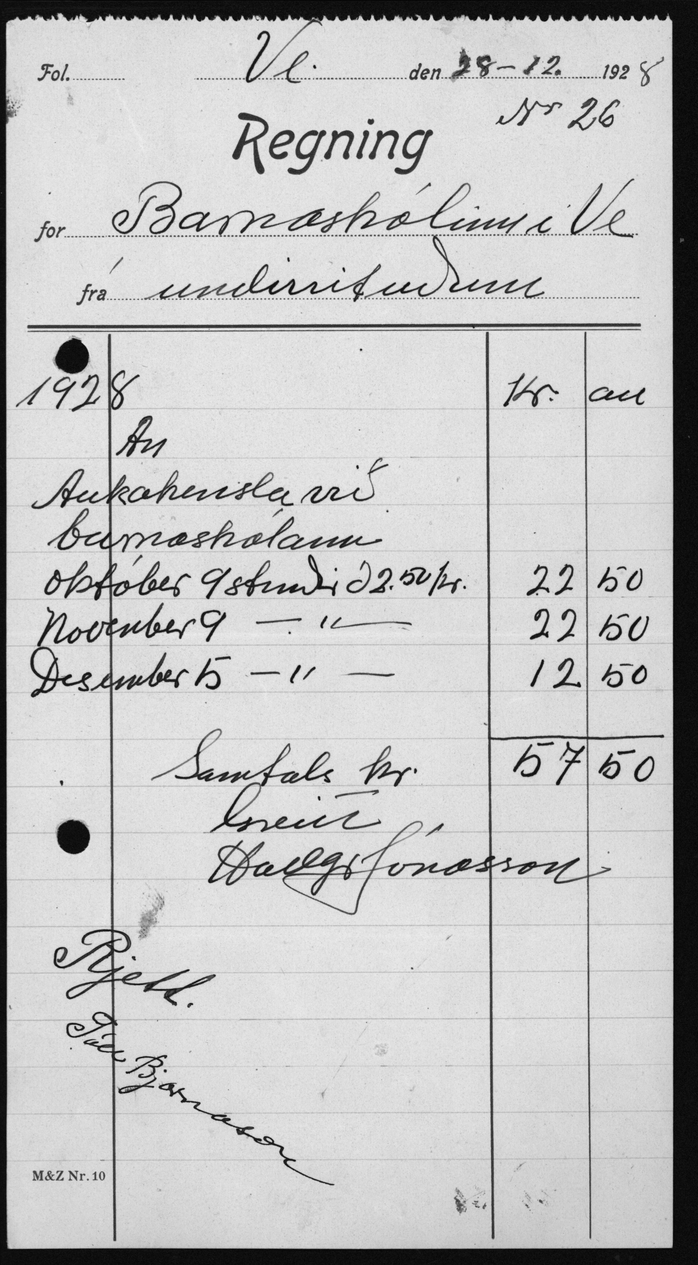 Fol. Ve. den 28-12. 1928
Nr 26
Regning
for Barnaskólinn í Ve
frá undirrituðum
1928 Kr. au
An
Aukakensla við
barnaskólann
október 9 stundir á 2.50 kr. 22 50
November 9 — " — 22 50
Desember 5 — " — 12 50
Samtals kr. 57 50
Greitt
Hallgr Jónasson
Rjett.
Páll Bjarnason
M&Z Nr. 10